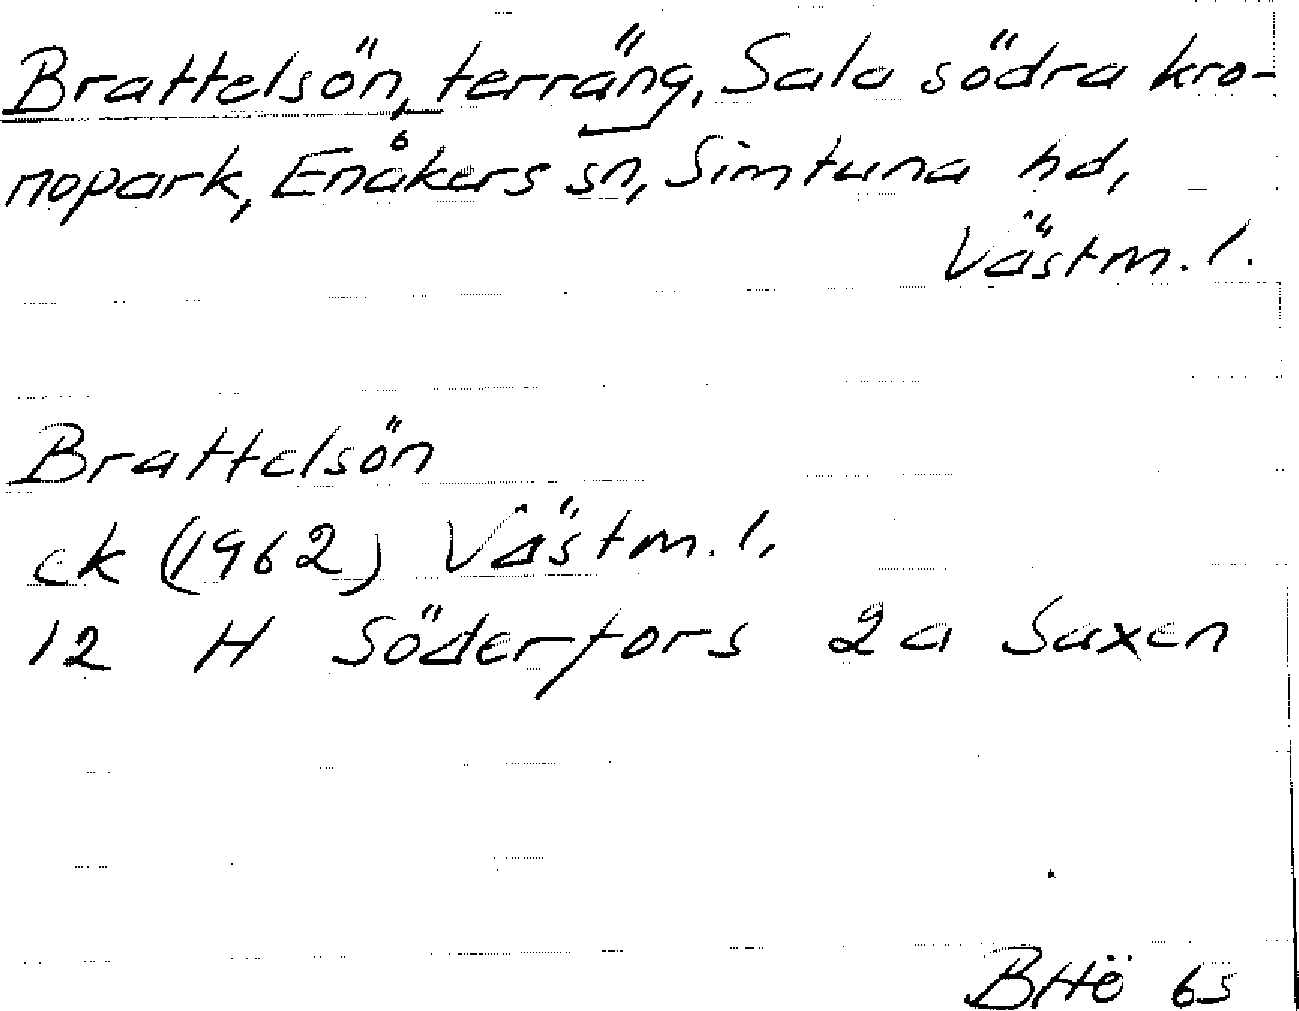 Brattelsön, terräng, Sala södra kro-
nopark, Enåkers sn, Simtuna hd,
Västm. l.
Brattelsön
ek (1962) Västm. l.
12 H Söderfors 2a Saxen
BHö 65